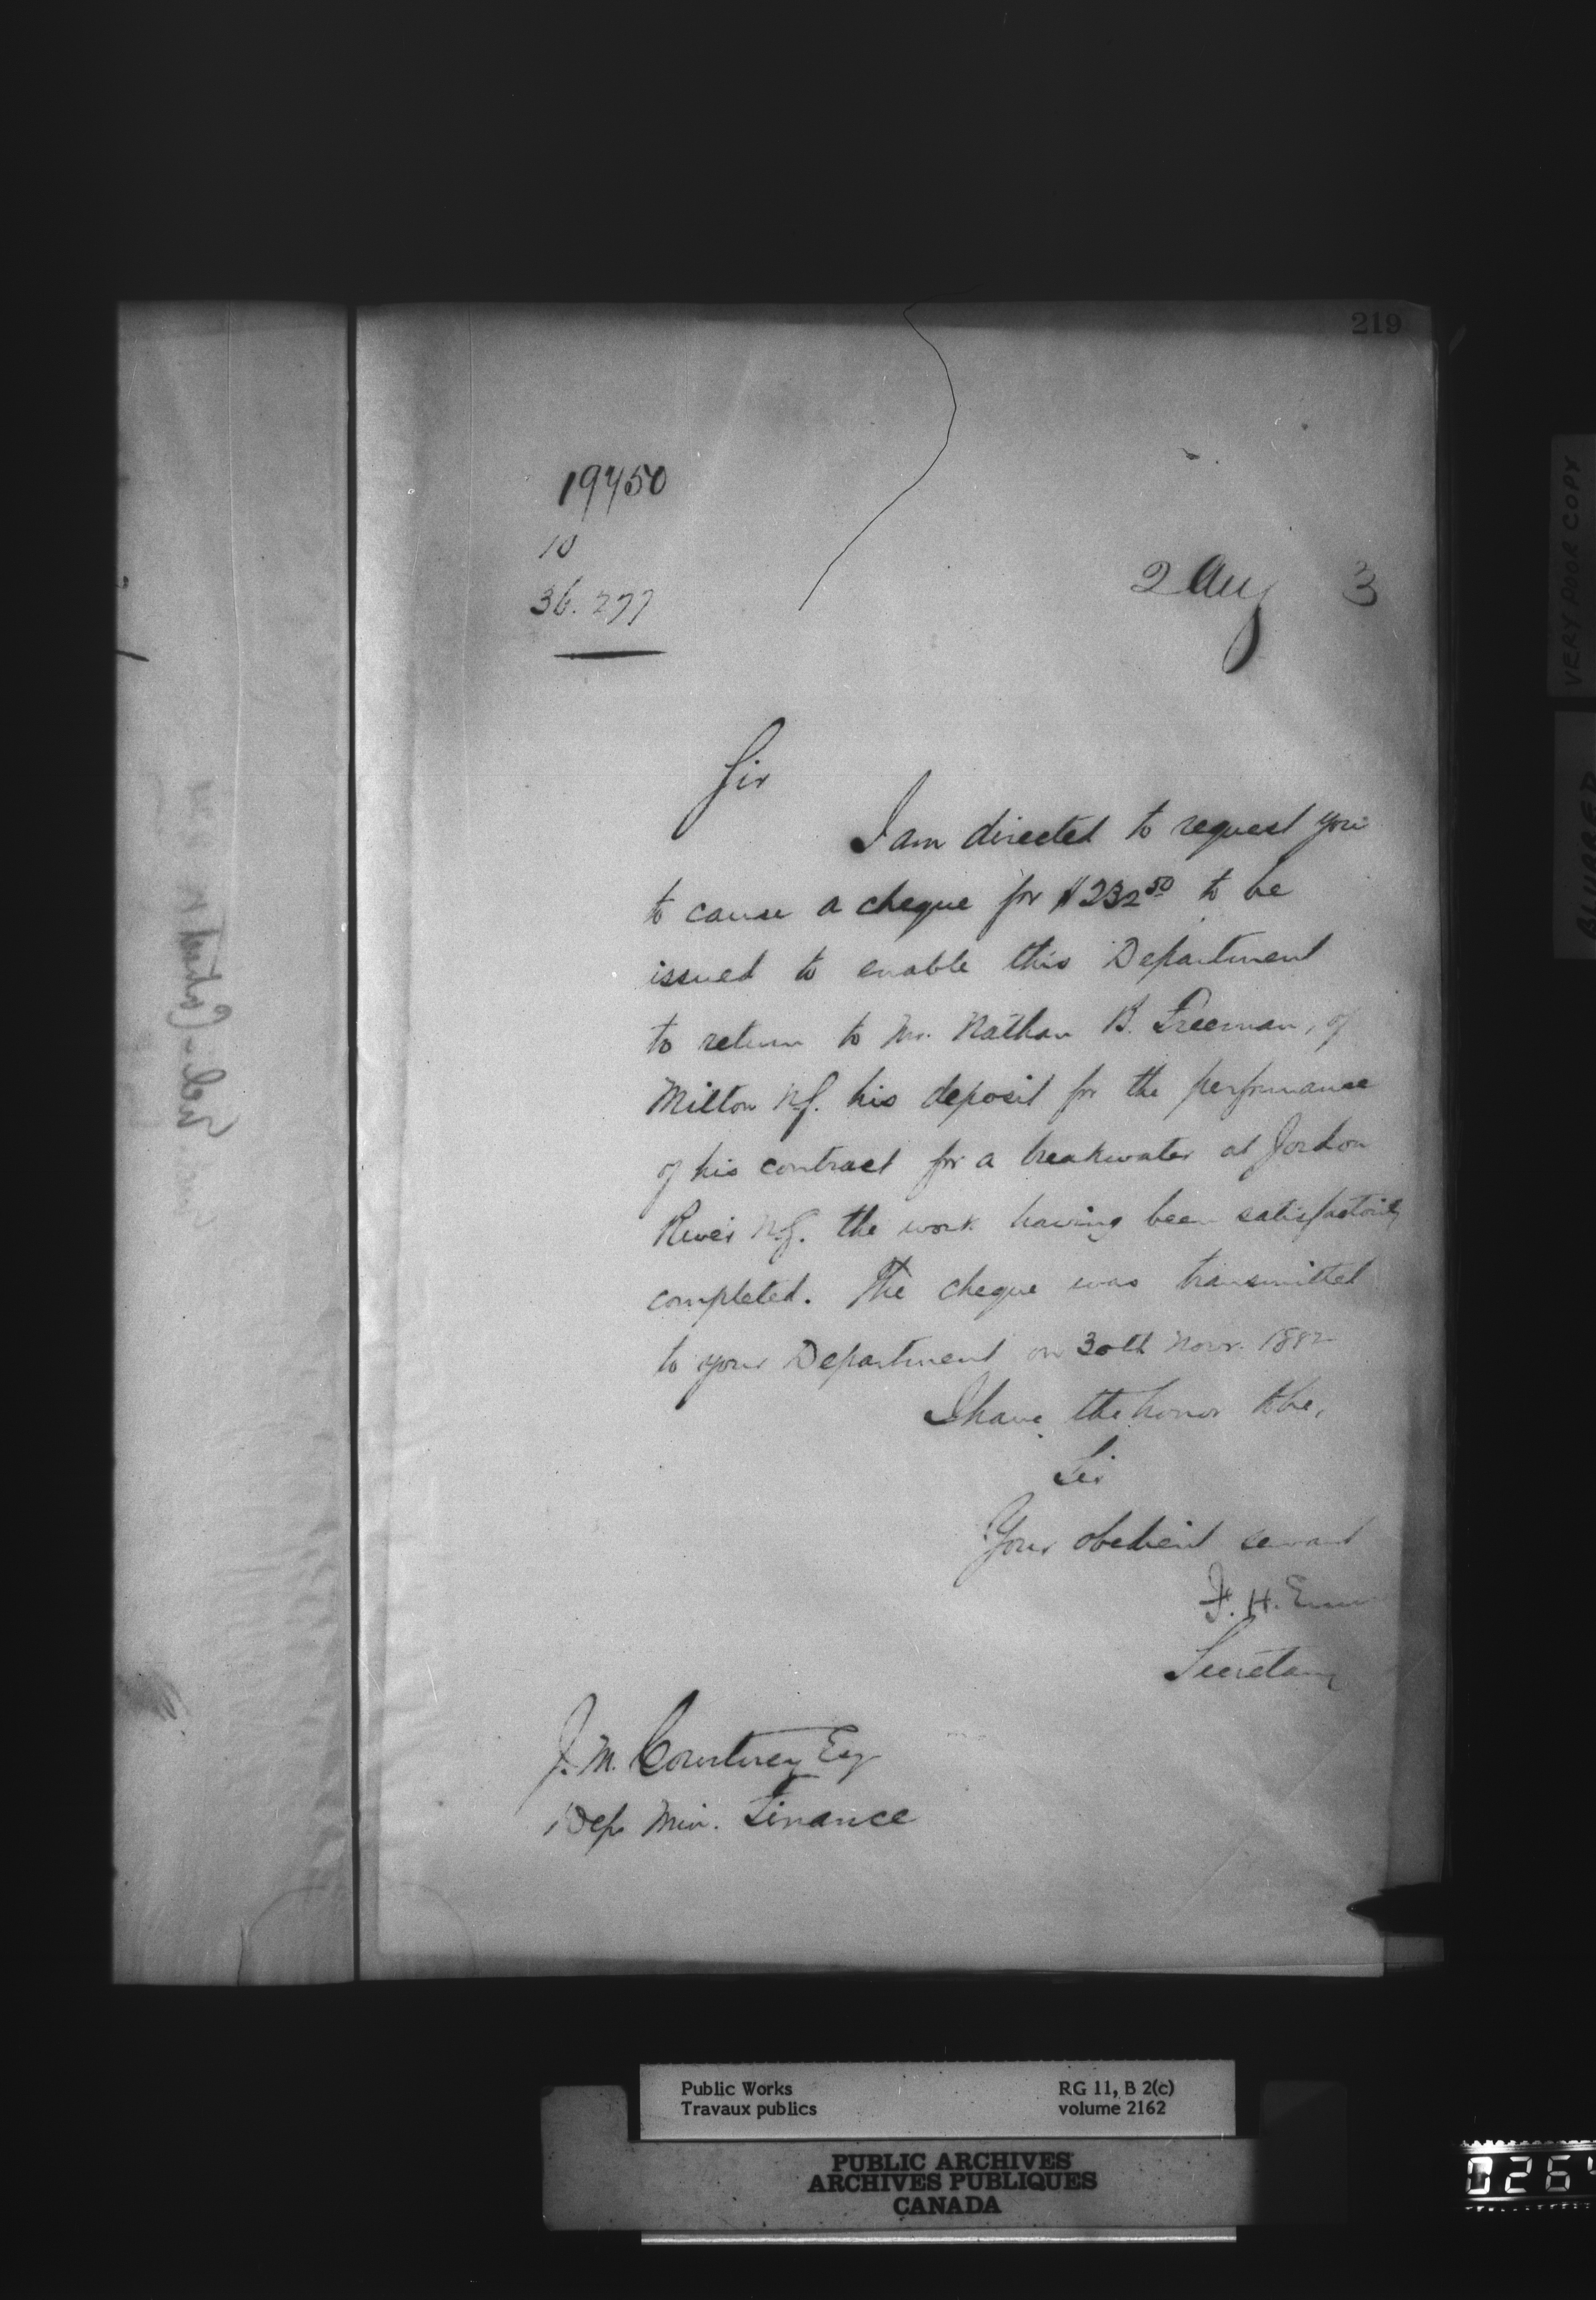 219
19450
10
36.277
2 Aug 3
Sir
I am directed to request you
to cause a cheque for $232 50 to be
issued to enable this Department
to return to Mr. Nathan B. Freeman, of
Milton N.S. his deposit for the performance
of his contract for a breakwater at Jordon
River N.S. the work having been satisfactorily
completed. The cheque was transmitted
to your Department on 30th Novr. 1882
I have the honor to be,
Sir
Your obedient servant
F. H. Ennis
Secretary
J. M. Courtney Esq
Dep Min. Finance
VERY POOR COPY
BLURRED
Public Works
Travaux publics
RG 11, B 2(c)
volume 2162
PUBLIC ARCHIVES
ARCHIVES PUBLIQUES
CANADA
026